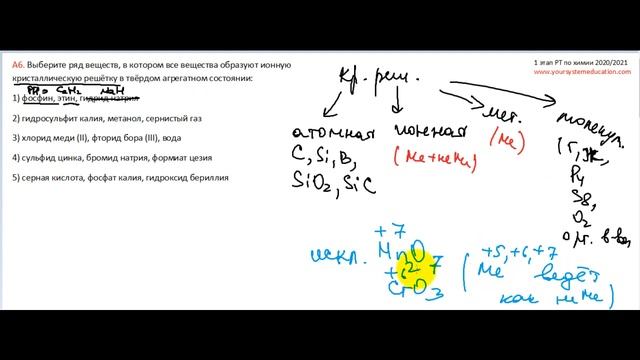 А6. Выберите ряд веществ, в котором все вещества образуют ионную
кристаллическую решётку в твёрдом агрегатном состоянии:
PH₃ C₂H₂ NaH
1) фосфин, этин, гидрид натрия
2) гидросульфит калия, метанол, сернистый газ
3) хлорид меди (II), фторид бора (III), вода
4) сульфид цинка, бромид натрия, формиат цезия
5) серная кислота, фосфат калия, гидроксид бериллия
1 этап РТ по химии 2020/2021
www.yoursystemeducation.com
кр. реш.
атомная
C, Si, B,
SiO₂, SiC
ионная
(Ме+неМе)
мет.
(Ме)
молекул.
(Г, Ж,
P₄
S₈,
O₂
орг. в-ва
искл.
+7
Mn₂O₇
+6
CrO₃
+5, +6, +7
(Ме ведёт
как неМе)